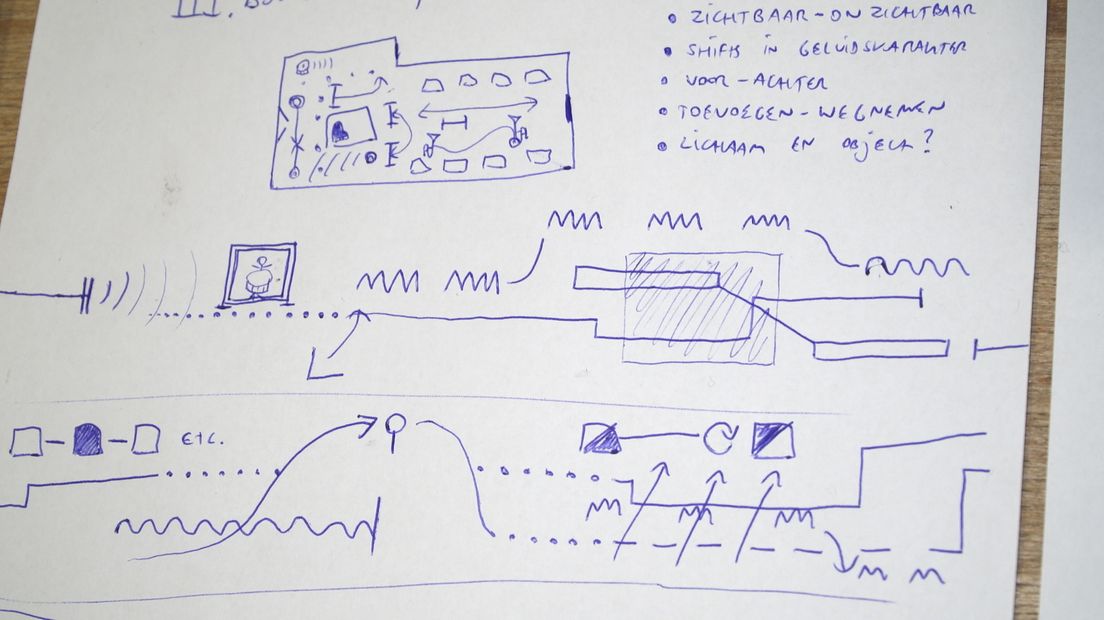 III.
• ZICHTBAAR - ONZICHTBAAR
• SHIFTS IN GELUIDSKARAKTER
• VOOR - ACHTER
• TOEVOEGEN - WEGNEMEN
• LICHAAM EN OBJECT?
ETC.